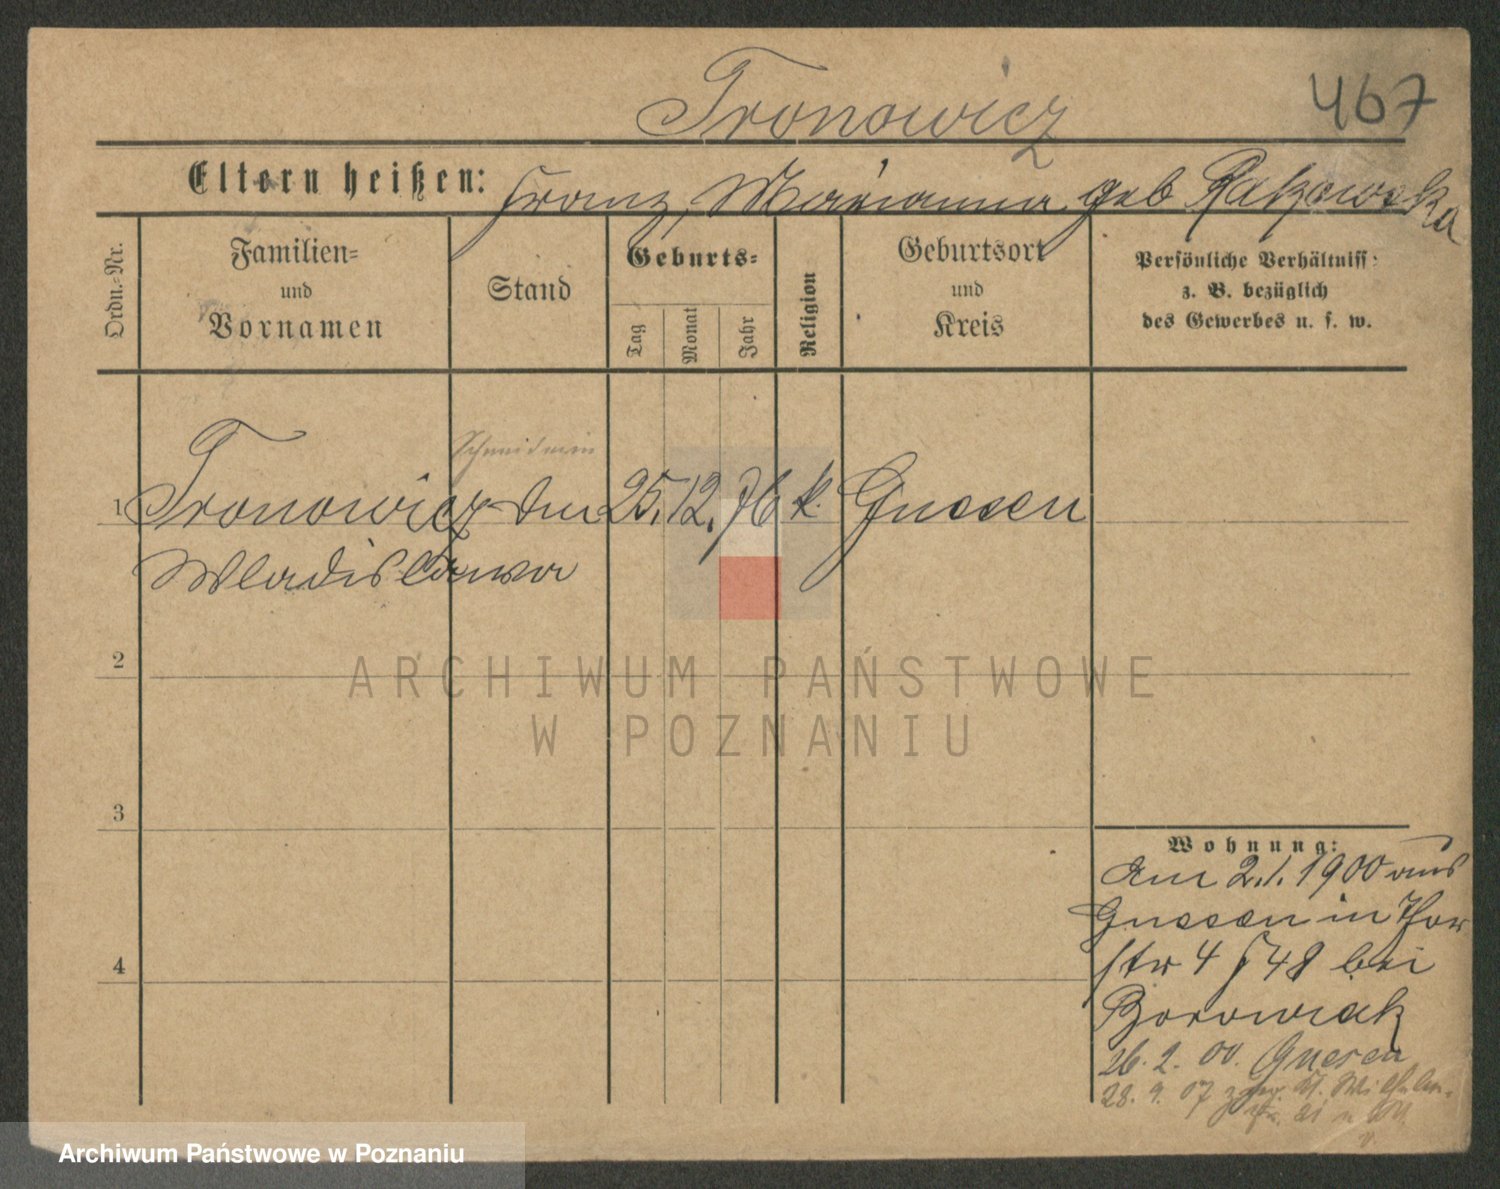 Tronowicz
467
Eltern heißen: Franz, Marianna geb Ratzowska
Ordn.-Nr.
Familien-
und
Vornamen
Stand
Geburts-
Tag
Monat
Jahr
Religion
Geburtsort
und
Kreis
Persönliche Verhältniss
z. B. bezüglich
des Gewerbes u. s. w.
1 Tronowicz 25. 12. 76 k. Gnesen
Wladislawa
2
3
4
Wohnung:
Am 2.1.1900 aus
Gnesen in Thor
str 4 bei
Borowiak
26. 2. 00. Gnesen
28. 9. 07
ARCHIWUM PAŃSTWOWE
W POZNANIU
Archiwum Państwowe w Poznaniu